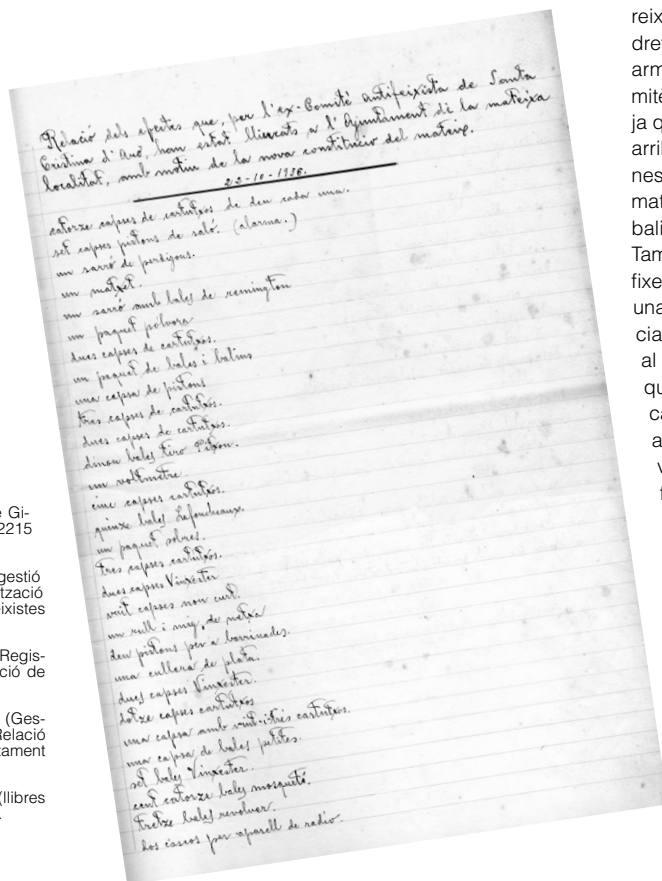 Relació dels efectes que, per l'ex-Comité antifeixista de Santa
Cristina d'Aro, hom estat lliurats a l'Ajuntament de la mateixa
localitat, amb motiu de la nova constitució del mateix.
22-10-1936.
catorze capses de cartutxos de deu cada una.
set capses pistons de saló. (alarma.)
un sarró de perdigons.
un matxet.
un sarró amb bales de remington
un paquet pólvora
dues capses de cartutxos.
un paquet de bales i balins
una capsa de pistons
tres capses de cartutxos.
dues capses de cartutxos.
dinou bales tiro Pixon.
un voltímetre.
cinc capses cartutxos.
quinze bales Lafoucheaux.
un paquet sobres.
tres capses cartutxos.
dues capses Vinxester
vuit capses nou curt.
un rull i mig, de metxa
deu pistons per a barrinades.
una cullara de plata.
dues capses Vinxester.
dotze capses cartutxos
una capsa amb vint-i-tres cartutxos.
una capsa de bales petites.
set bales Vinxester.
cent catorze bales mosquetó.
tretze bales revolver.
dos cascos per aparell de radio.
e Gi-
2215
gestió
tzació
eixistes
Regis-
ció de
(Ges-
Relació
tament
(llibres
reix
dret
arm
mitè
ja q
arrib
nes
mat
bali
Tam
fixe
una
cia
al
qu
ca
a
v
f